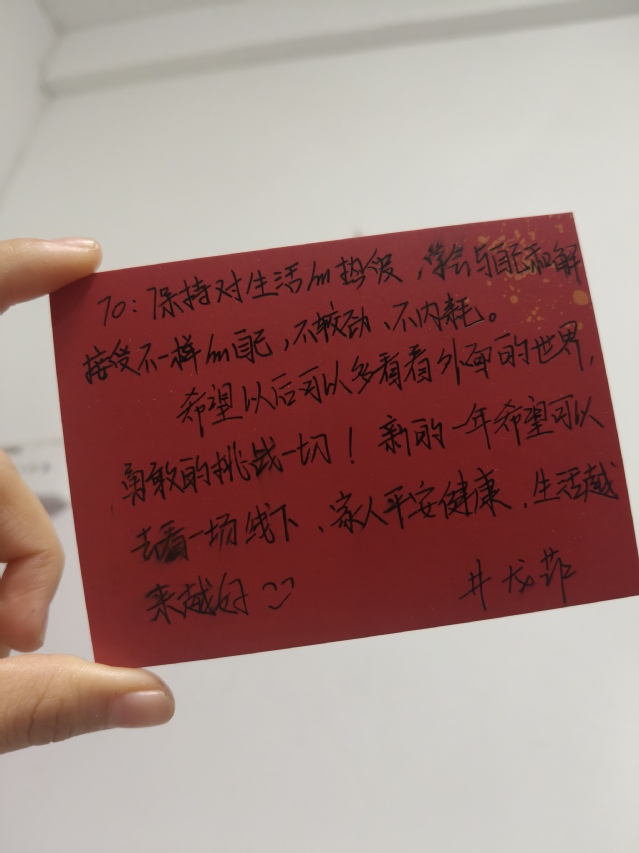 TO：保持对生活的热爱，学会与自己和解
接受不一样的自己，不较劲、不内耗。
希望以后可以多看看外面的世界，
勇敢的挑战一切！新的一年希望可以
去看一场线下、家人平安健康、生活越
来越好
井龙